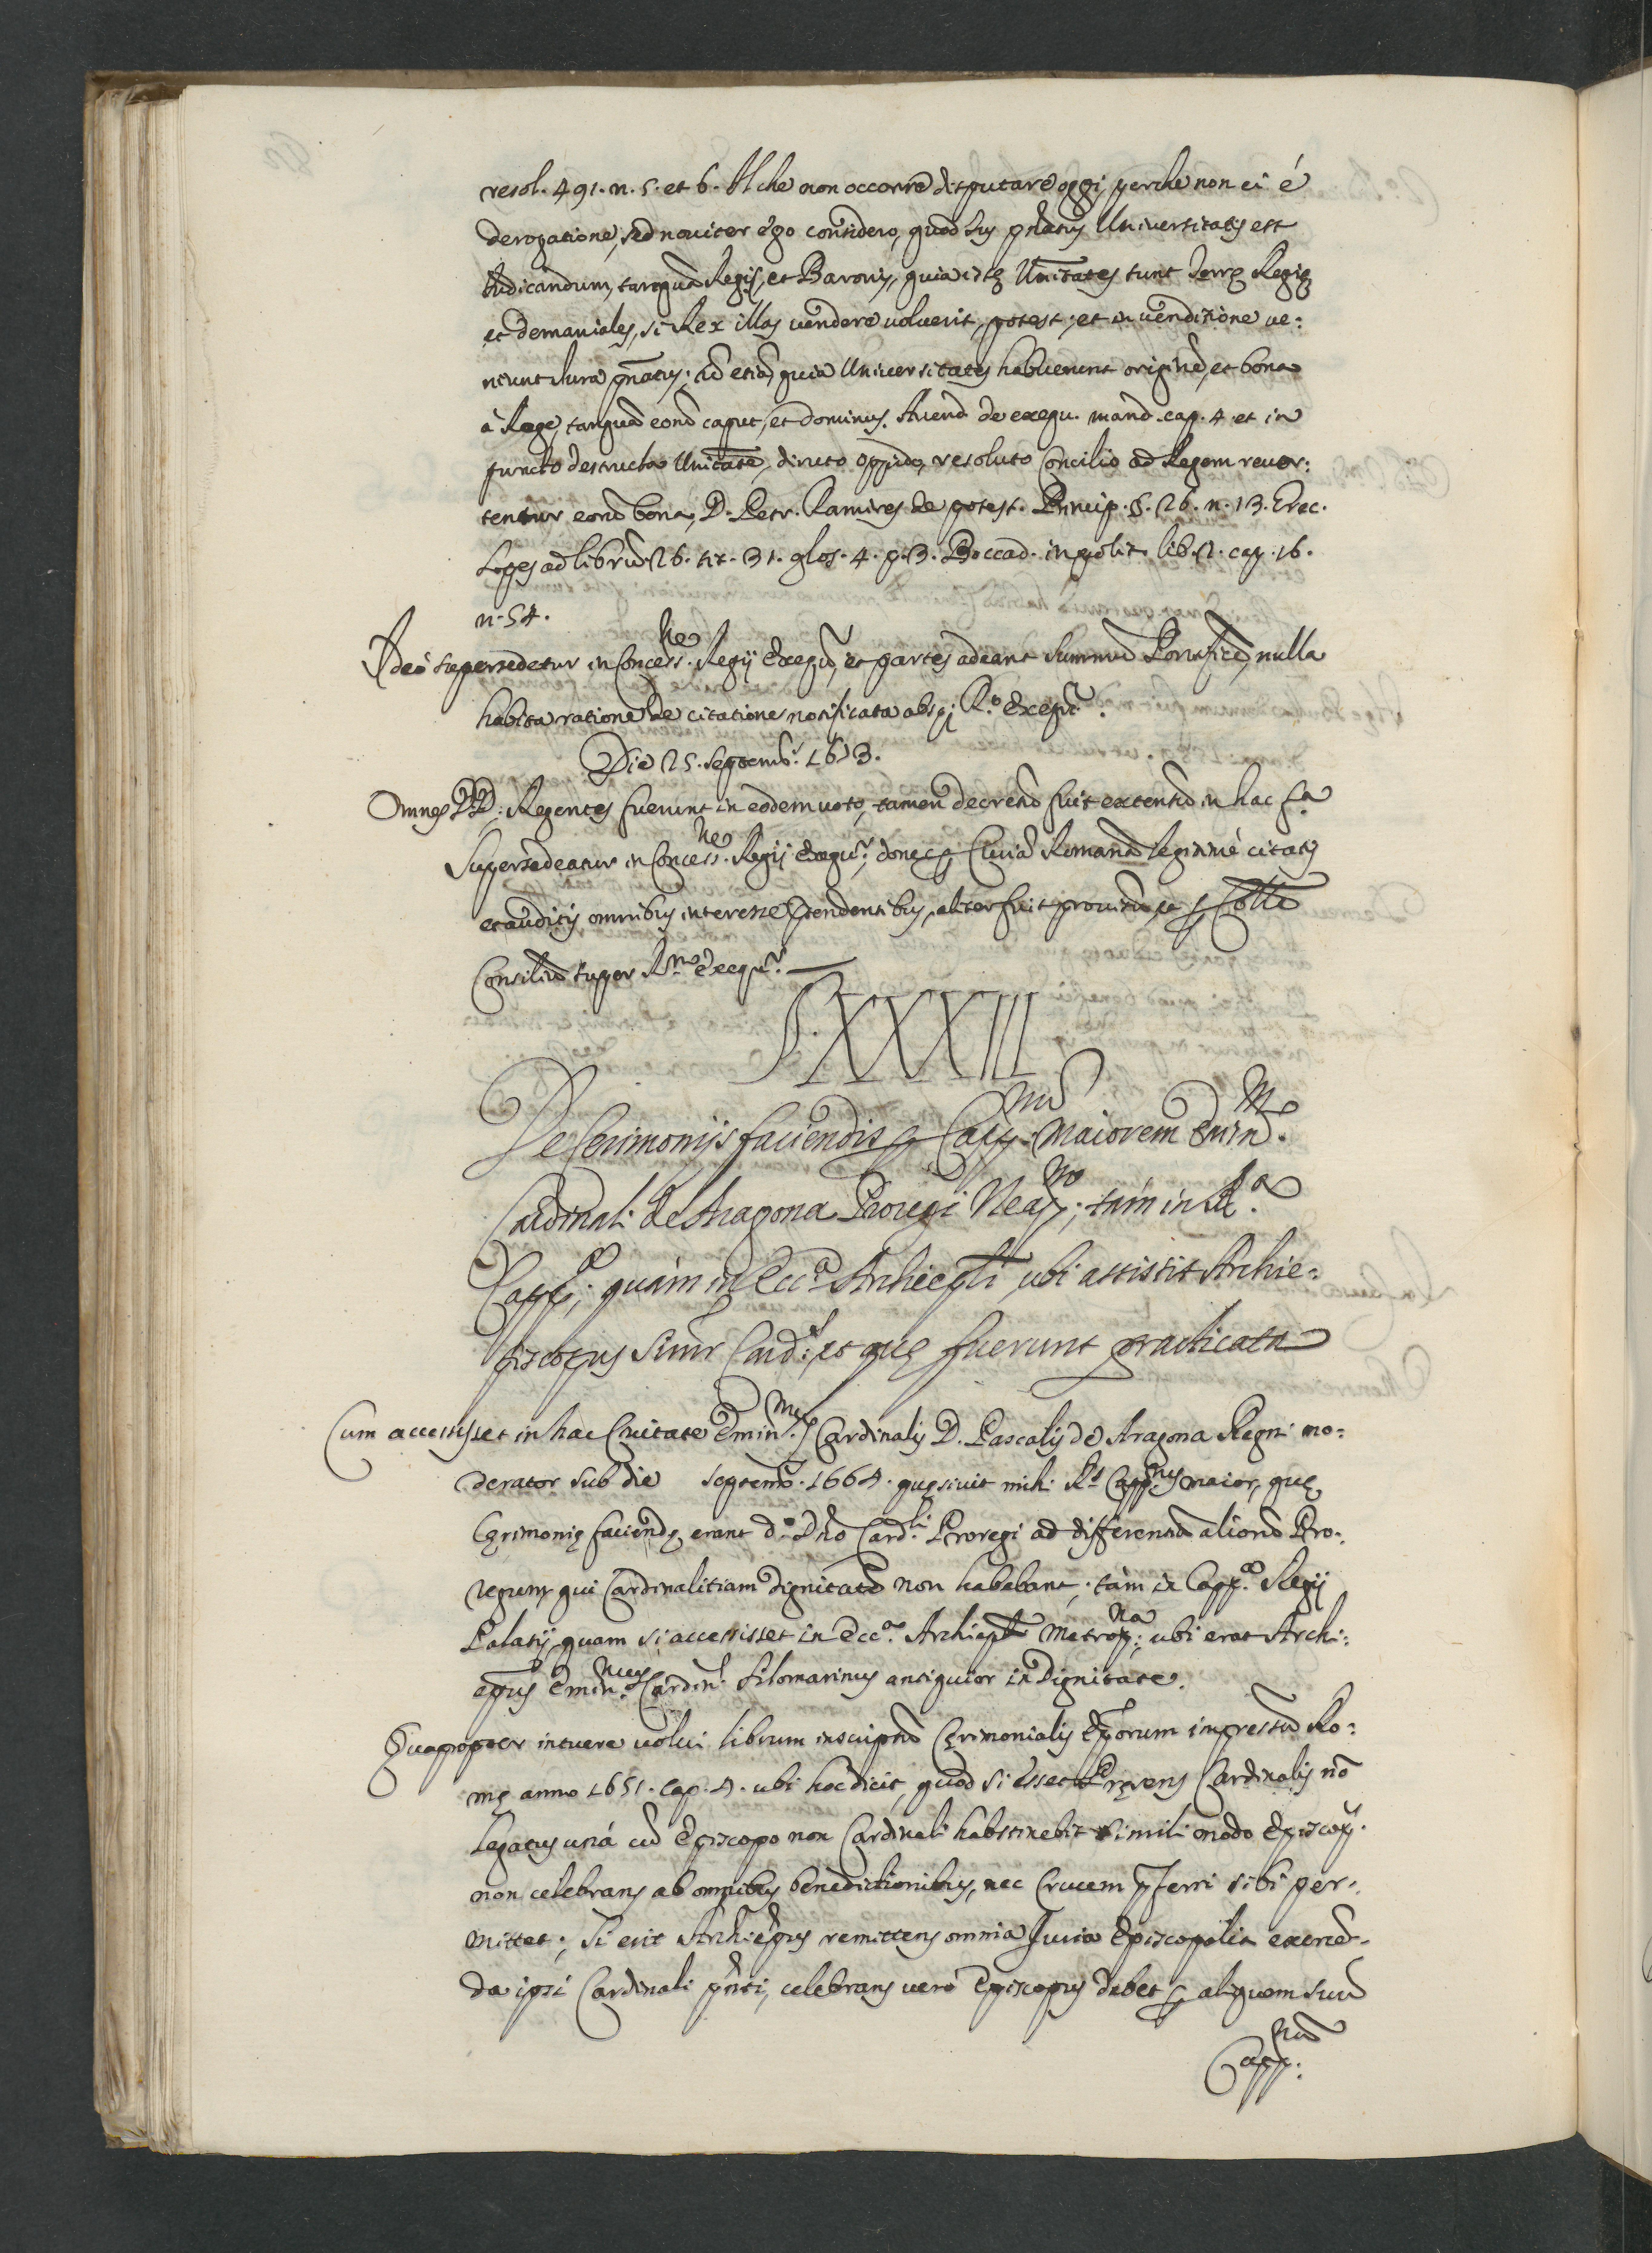 resol. 491. n. 5. et 6. Il che non occorre disputare oggi, perche non ci é
derogatione, sed noviter ego considero, quod Ius pñatus Universitatis est
Iudicandum, tanquã Regis, et Baronis, quia istę Unitates sunt Terrę Regię
et demaniales, si Rex illas vendere voluerit, potest, et in venditione ve:
niunt Iura pñatus; cũ etiã quia Universitates habuerunt originẽ, et bona
à Rege, tanquã eorũ caput, et dominus. Avend. de exequ. mand. cap. 4. et in
puncto destructa Unitate, diruto oppido, resoluto Concilio ad Regem rever:
tentur eorũ bona, D. Petr. Ramires de potest. Princip. §. 26. n. 13. Grec.
Lopes ad librũ 26. tit. 31. glos. 4. p. 3. Boccad. in polit. lib. 2. cap. 16.
n. 54.
Ideò supersedetur in Concess.ne Regij Exequr̃, et partes adeant Summũ Pontificẽ, nulla
habita ratione de citatione notificata absq; R.o Exequr̃.
Die 25. Septemb. 1653.
Omnes DD. Regentes fuerunt in eodem voto, tamen decretũ fuit extensũ in hac fa
Supersedeatur in Concess.ne Regij Exequr̃, donec per Curiã Romanã legitimè citatis
et auditis omnibus interesse pñtendentibus, aliter fuit provisũ, et per Colle
Consiliũ super R.no Exequr̃.
§. XXXIII
De Cerimonijs faciendis per Capp.num Maiorem Emin.mo
Cardinali de Aragona Proregi Neap.no; tàm in R.a
Capp.a; quàm in Ecc.a Archiepli, ubi assistit Archie:
piscopus Simr Card.l; et quę fuerunt practicata
Cum accessisset in hac Civitate Emin.mus Cardinalis D. Pascalis de Aragona Regni mo:
derator sub die septemb. 1664. quęsivit mihi R.s Capp.nus maior, quę
Cęrimonię faciendę erant d.o Dño Card.li Proregi ad differentiã aliorũ Pro:
regum, qui Cardinalitiam dignitatẽ non habebant; tàm in Capp.a Regij
Palatij, quam si accessisset in Ecc.a Archiepli Metrop.na; ubi erat Archi:
epus Emin.mus Cardin.l Filomarinus antiquior in Dignitate.
Quapropter intuere volui librum inscriptũ Cęrimonialis Eporum impressũ Ro:
mę anno 1651. cap. 4. ubi hoc dicit, quod si esset Pręsens Cardinalis nõ
Legatus unà cũ Episcopo non Cardinali habstinebit simili modo Episcop.s
non celebrans ab omnibus benedictionibus, nec Crucem pferri sibi per:
mittet; Si erit Archiepus remittens omnia Iuria Episcopalia exercẽ:
da ipsi Cardinali pñti, celebrans verò Episcopus debet per aliquem suũ
Capp.num